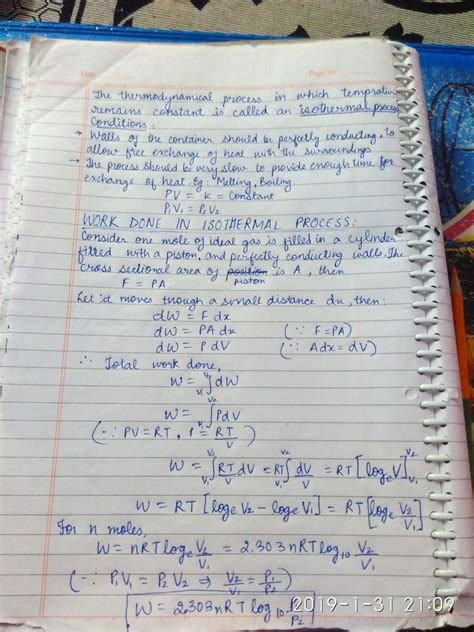 Date
Page no
The thermodynamical process in which temprature
remains constant is called an isothermal process
Conditions:
→ Walls of the container should be perfectly conducting, to
allow free exchange of heat with the surroundings
→ The process should be very slow to provide enough time for
exchange of heat. Eg: Melting, Boiling
PV = k = Constant
P₁V₁ = P₂V₂
WORK DONE IN ISOTHERMAL PROCESS:
Consider one mole of ideal gas is filled in a cylinder
filled with a piston, and perfectly conducting walls. The
cross sectional area of position is A, then
piston
F = PA.
Let it moves though a small distance dx, then:
dW = F dx
dW = PA dx (∵ F=PA)
dW = P dV (∵ Adx = dV)
∴ Total work done,
W = ∫_{V₁}^{V₂} dW
W = ∫_{V₁}^{V₂} PdV
(∵ PV = RT, P = RT/V)
W = ∫_{V₁}^{V₂} RT/V dV = RT ∫_{V₁}^{V₂} dV/V = RT [logₑV]_{V₁}^{V₂}
W = RT [logₑ V₂ - logₑ V₁] = RT [logₑ V₂/V₁]
For n moles,
W = nRT logₑ V₂/V₁ = 2.303 nRT log₁₀ V₂/V₁
(∵ P₁V₁ = P₂V₂ ⇒ V₂/V₁ = P₁/P₂)
W = 2.303 nRT log₁₀ P₁/P₂
2019-1-31 21:09